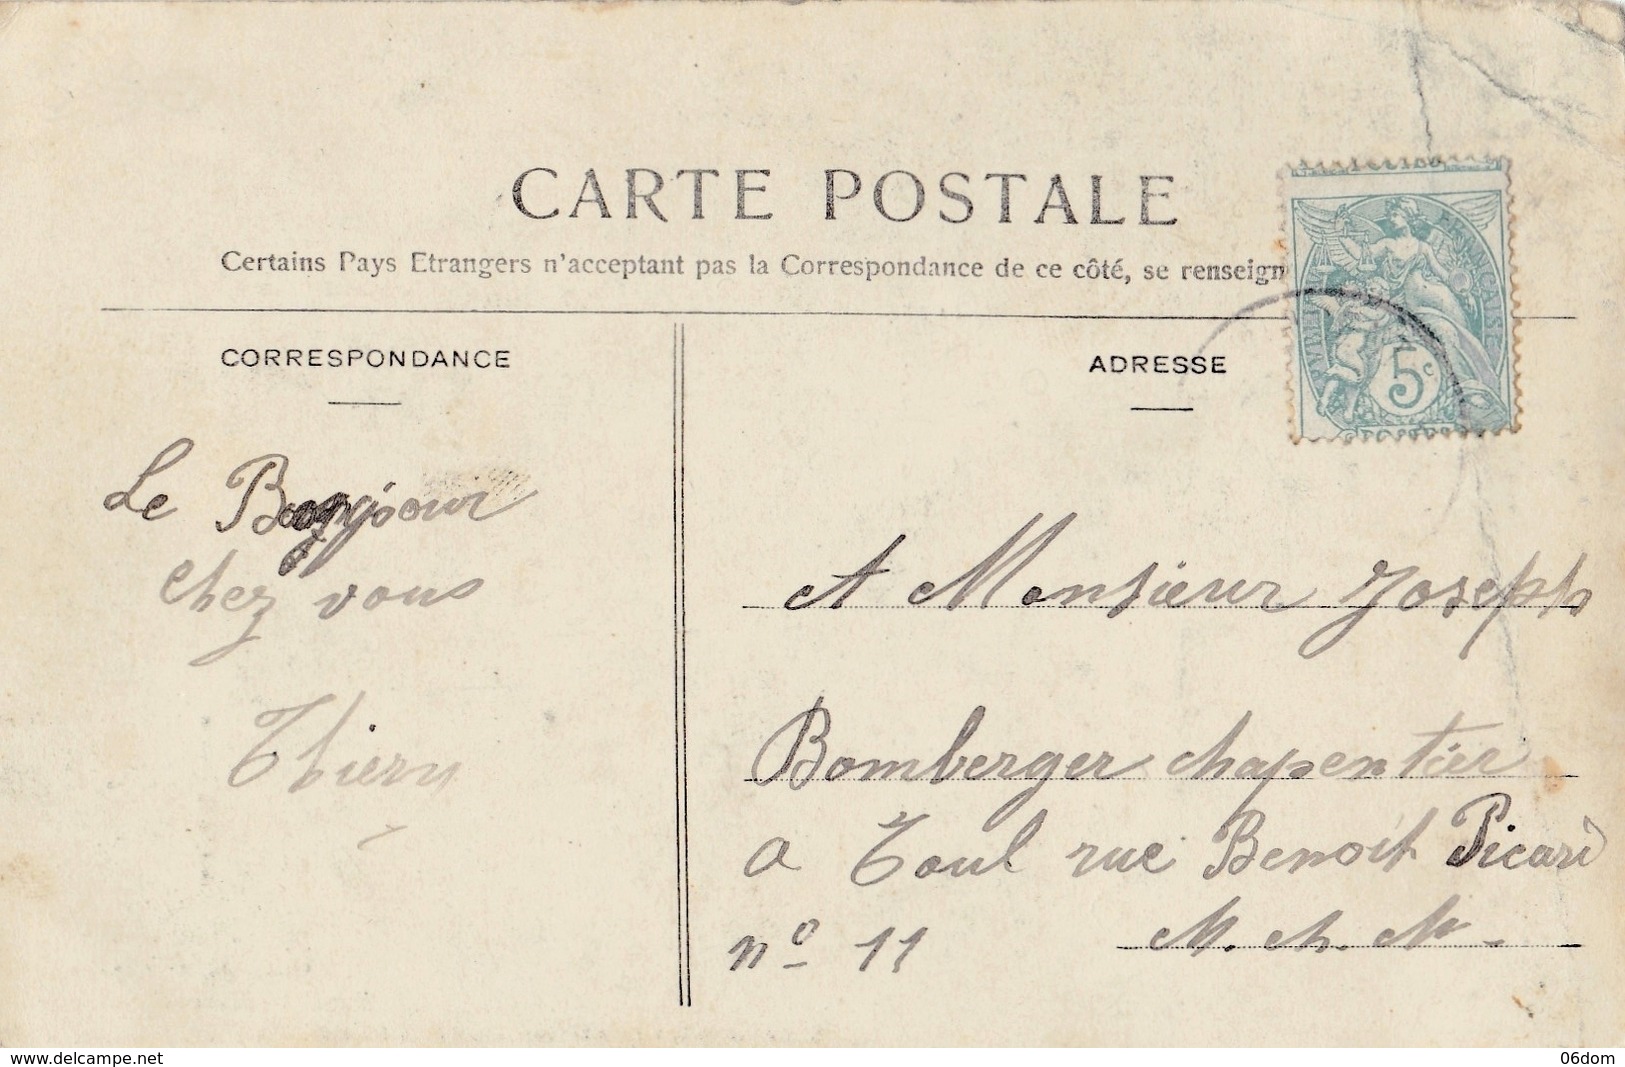 CARTE POSTALE
Certains Pays Etrangers n'acceptant pas la Correspondance de ce côté, se renseign
CORRESPONDANCE
ADRESSE
5c
Le Bonjour
chez vous
Thiery
A Monsieur Joseph
Bomberger chapentier
a Toul rue Benoit Picard
no 11
M. et M.
www.delcampe.net
06dom